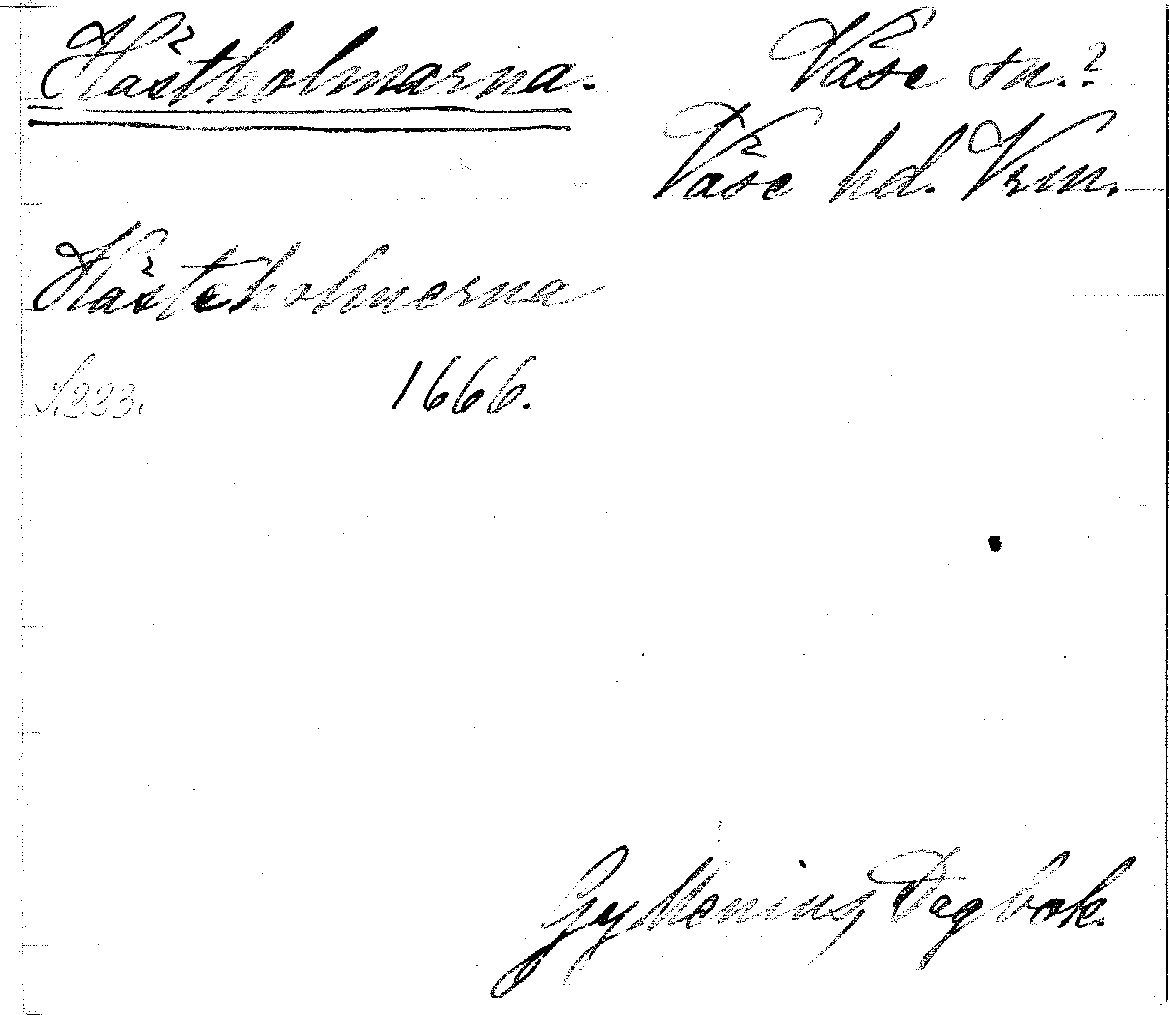 Hästholmarna. Väse sn.?
Väse hd. Vrm.
Hästeholmerna
S. 223. 1666.
Gyllenius, Dagbok.